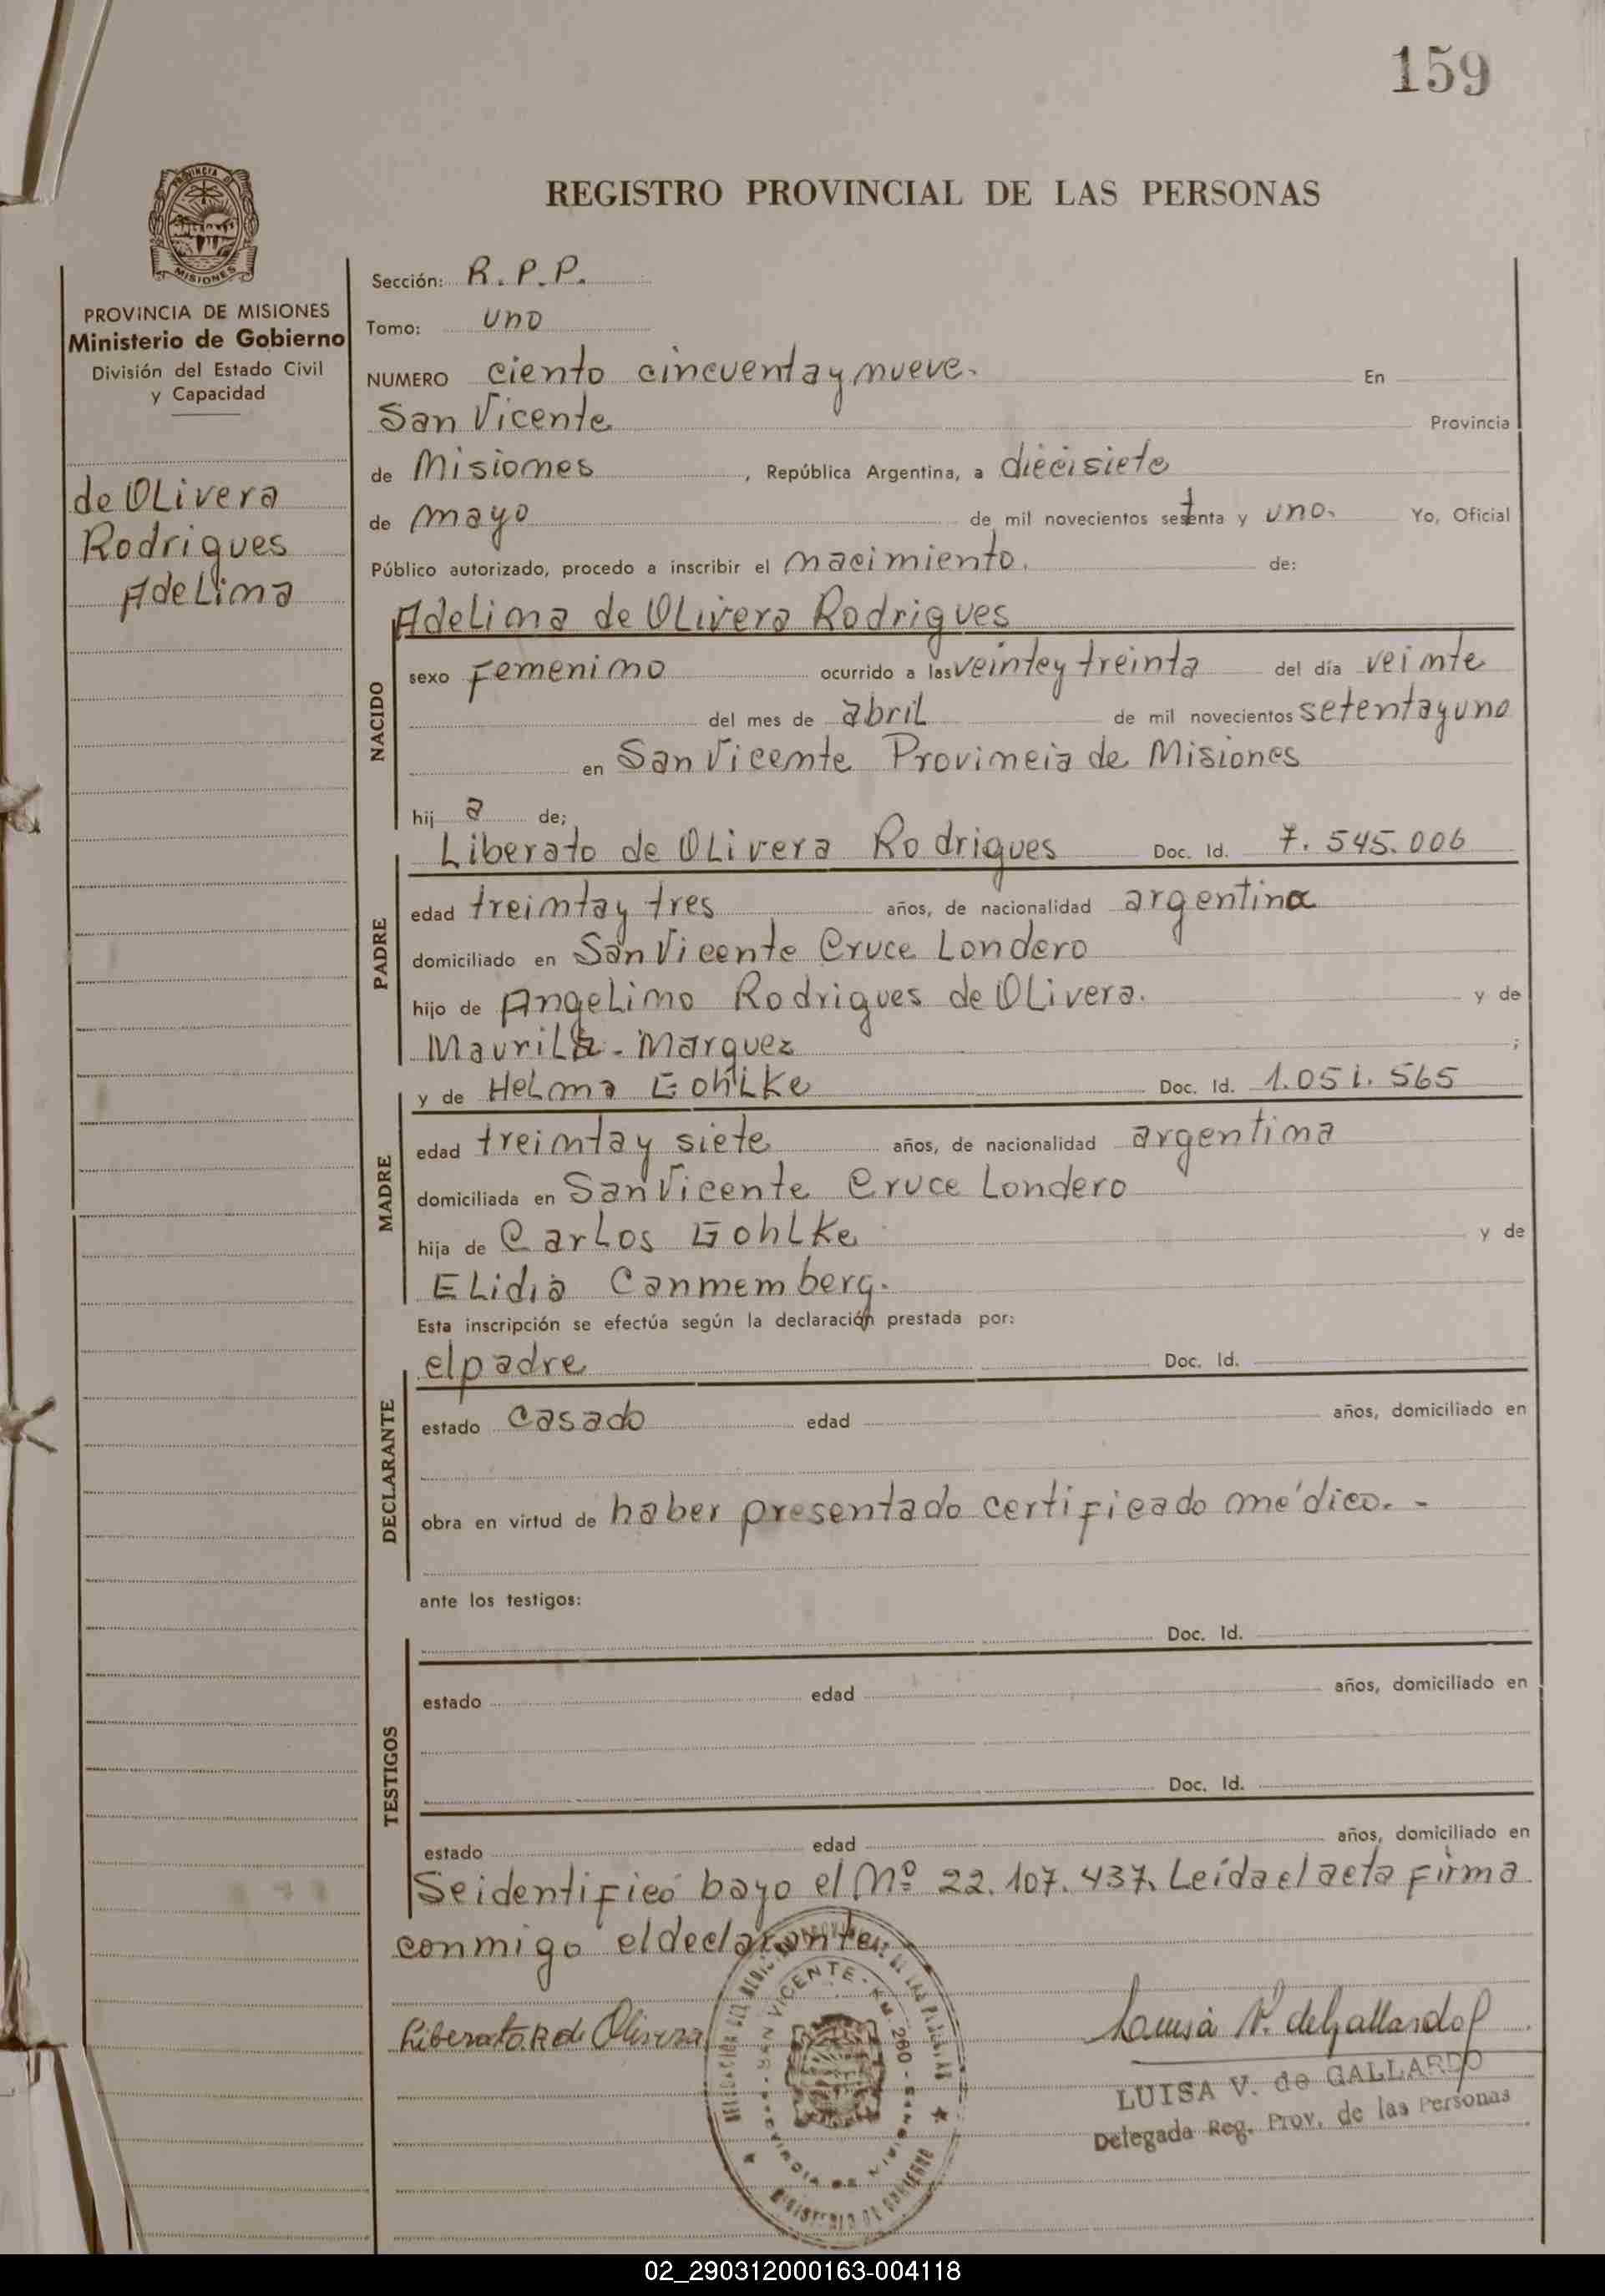 159
PROVINCIA DE
MISIONES
REGISTRO PROVINCIAL DE LAS PERSONAS
PROVINCIA DE MISIONES
Ministerio de Gobierno
División del Estado Civil
y Capacidad
de Olivera
Rodrigues
Adelina
Sección: R. P. P.
Tomo: uno
NUMERO ciento cincuenta y nueve. En
San Vicente Provincia
de Misiones, República Argentina, a diecisiete
de mayo de mil novecientos setenta y uno. Yo, Oficial
Público autorizado, procedo a inscribir el nacimiento. de:
Adelina de Olivera Rodrigues
NACIDO
sexo femenino ocurrido a las veinte y treinta del día veinte
del mes de abril de mil novecientos setenta y uno
en San Vicente Provincia de Misiones
hij a de;
Liberato de Olivera Rodrigues Doc. Id. 7.545.006
PADRE
edad treinta y tres años, de nacionalidad argentina
domiciliado en San Vicente Cruce Londero
hijo de Angelino Rodrigues de Olivera. y de
Maurila - Marquez ;
y de Helma Gohlke Doc. Id. 1.051.565
MADRE
edad treinta y siete años, de nacionalidad argentina
domiciliada en San Vicente Cruce Londero
hija de Carlos Gohlke y de
Elidia Canmemberg.
Esta inscripción se efectúa según la declaración prestada por:
el padre Doc. Id.
DECLARANTE
estado casado edad años, domiciliado en
obra en virtud de haber presentado certificado médico. -
ante los testigos:
Doc. Id.
TESTIGOS
estado edad años, domiciliado en
Doc. Id.
estado edad años, domiciliado en
Se identificó bajo el Nº 22.107.437. Leída el acta firma
conmigo el declarante.
Liberato R de Olivera
Luisa V. de Gallardo
LUISA V. de GALLARDO
Delegada Reg. Prov. de las Personas
SAN VICENTE - KM. 260
MINISTERIO DE GOBIERNO
02_290312000163-004118